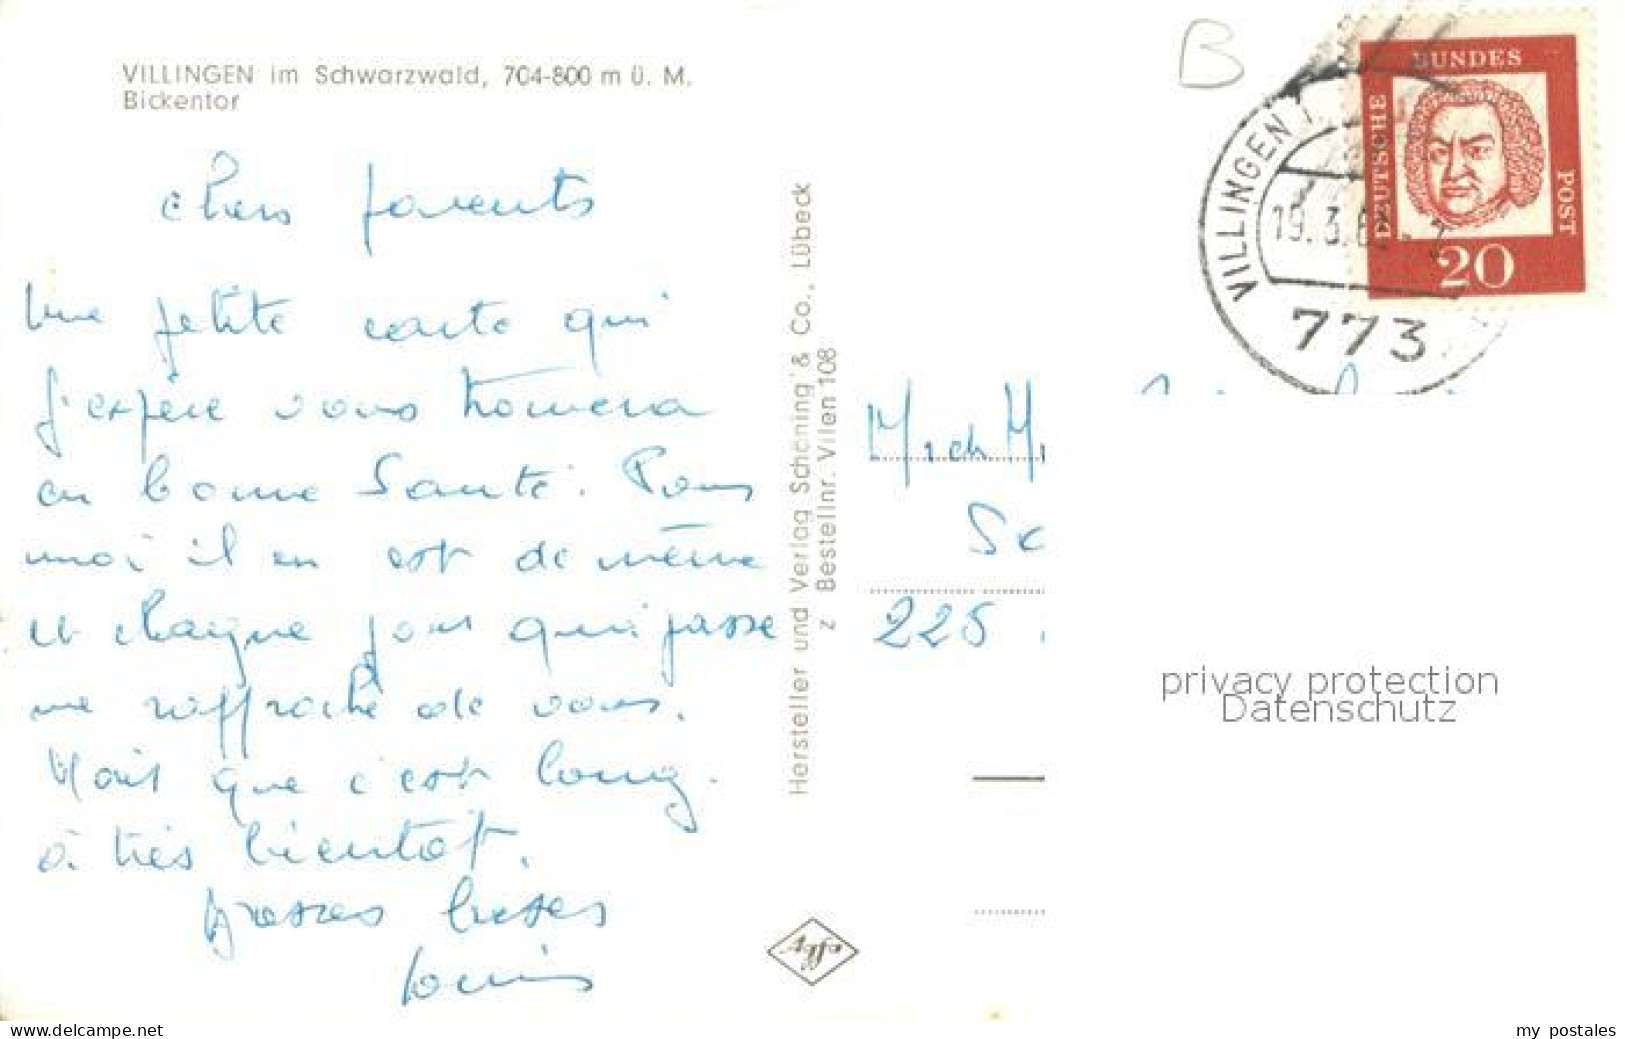 VILLINGEN im Schwarzwald, 704-800 m ü. M.
Bickentor
chers parents
Une petite carte qui
j'espère vous trouvera
en bonne Santé. Pour
moi il en est de même
et chaque jour qui passe
me rapproche de vous.
Mais que c'est long.
à très bientôt.
grosses bises
Louis
Hersteller und Verlag Schöning & Co., Lübeck
z Bestellnr. Vilen 108
Agfa
B
VILLINGEN
19.3.6
773
DEUTSCHE
BUNDES
POST
20
225
privacy protection
Datenschutz
www.delcampe.net
my postales